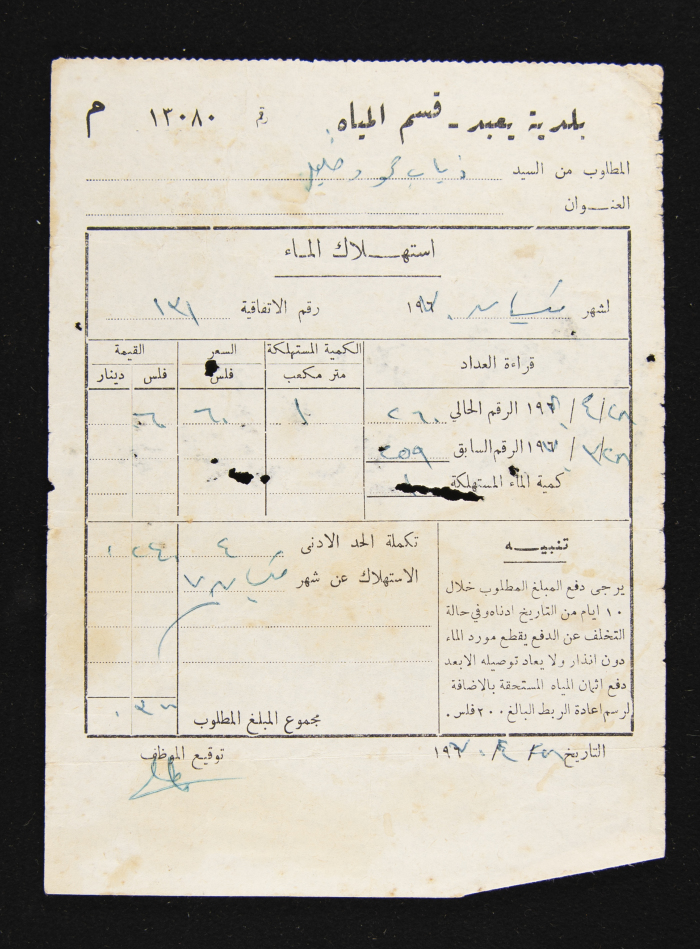 بلدية يعبد - قسم المياه رقم ١٣٠٨٠ م
المطلوب من السيد ذياب حمود خليل
العنـــوان
استهـــلاك المـاء
لشهر نيسان ١٩٦ رقم الاتفاقية ١٣١
قراءة العداد الكمية المستهلكة السعر القيمة
متر مكعب فلس فلس دينار
٢٨/٤/١٩٦ الرقم الحالي ٢٦٠ ١ ٦٠ ٦٠
٢٨/٣/١٩٦ الرقم السابق ٢٥٩
كمية الماء المستهلكة
تنبيـــه
يرجى دفع المبلغ المطلوب خلال
١٠ ايام من التاريخ ادناه وفي حالة
التخلف عن الدفع يقطع مورد الماء
دون انذار ولا يعاد توصيله الا بعد
دفع اثمان المياه المستحقة بالاضافة
لرسم اعادة الربط البالغ ٢٠٠ فلس.
تكملة الحد الادنى ٤ ٢٤٠
الاستهلاك عن شهر نيسان
مجموع المبلغ المطلوب ٣٠٠
التاريخ ٢٨/٤/١٩٦ توقيع الموظف